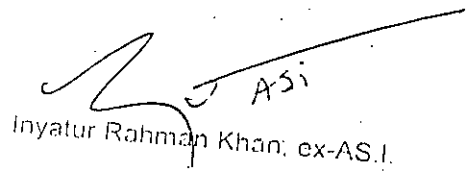 ASi
Inyatur Rahman Khan, ex-AS.I.